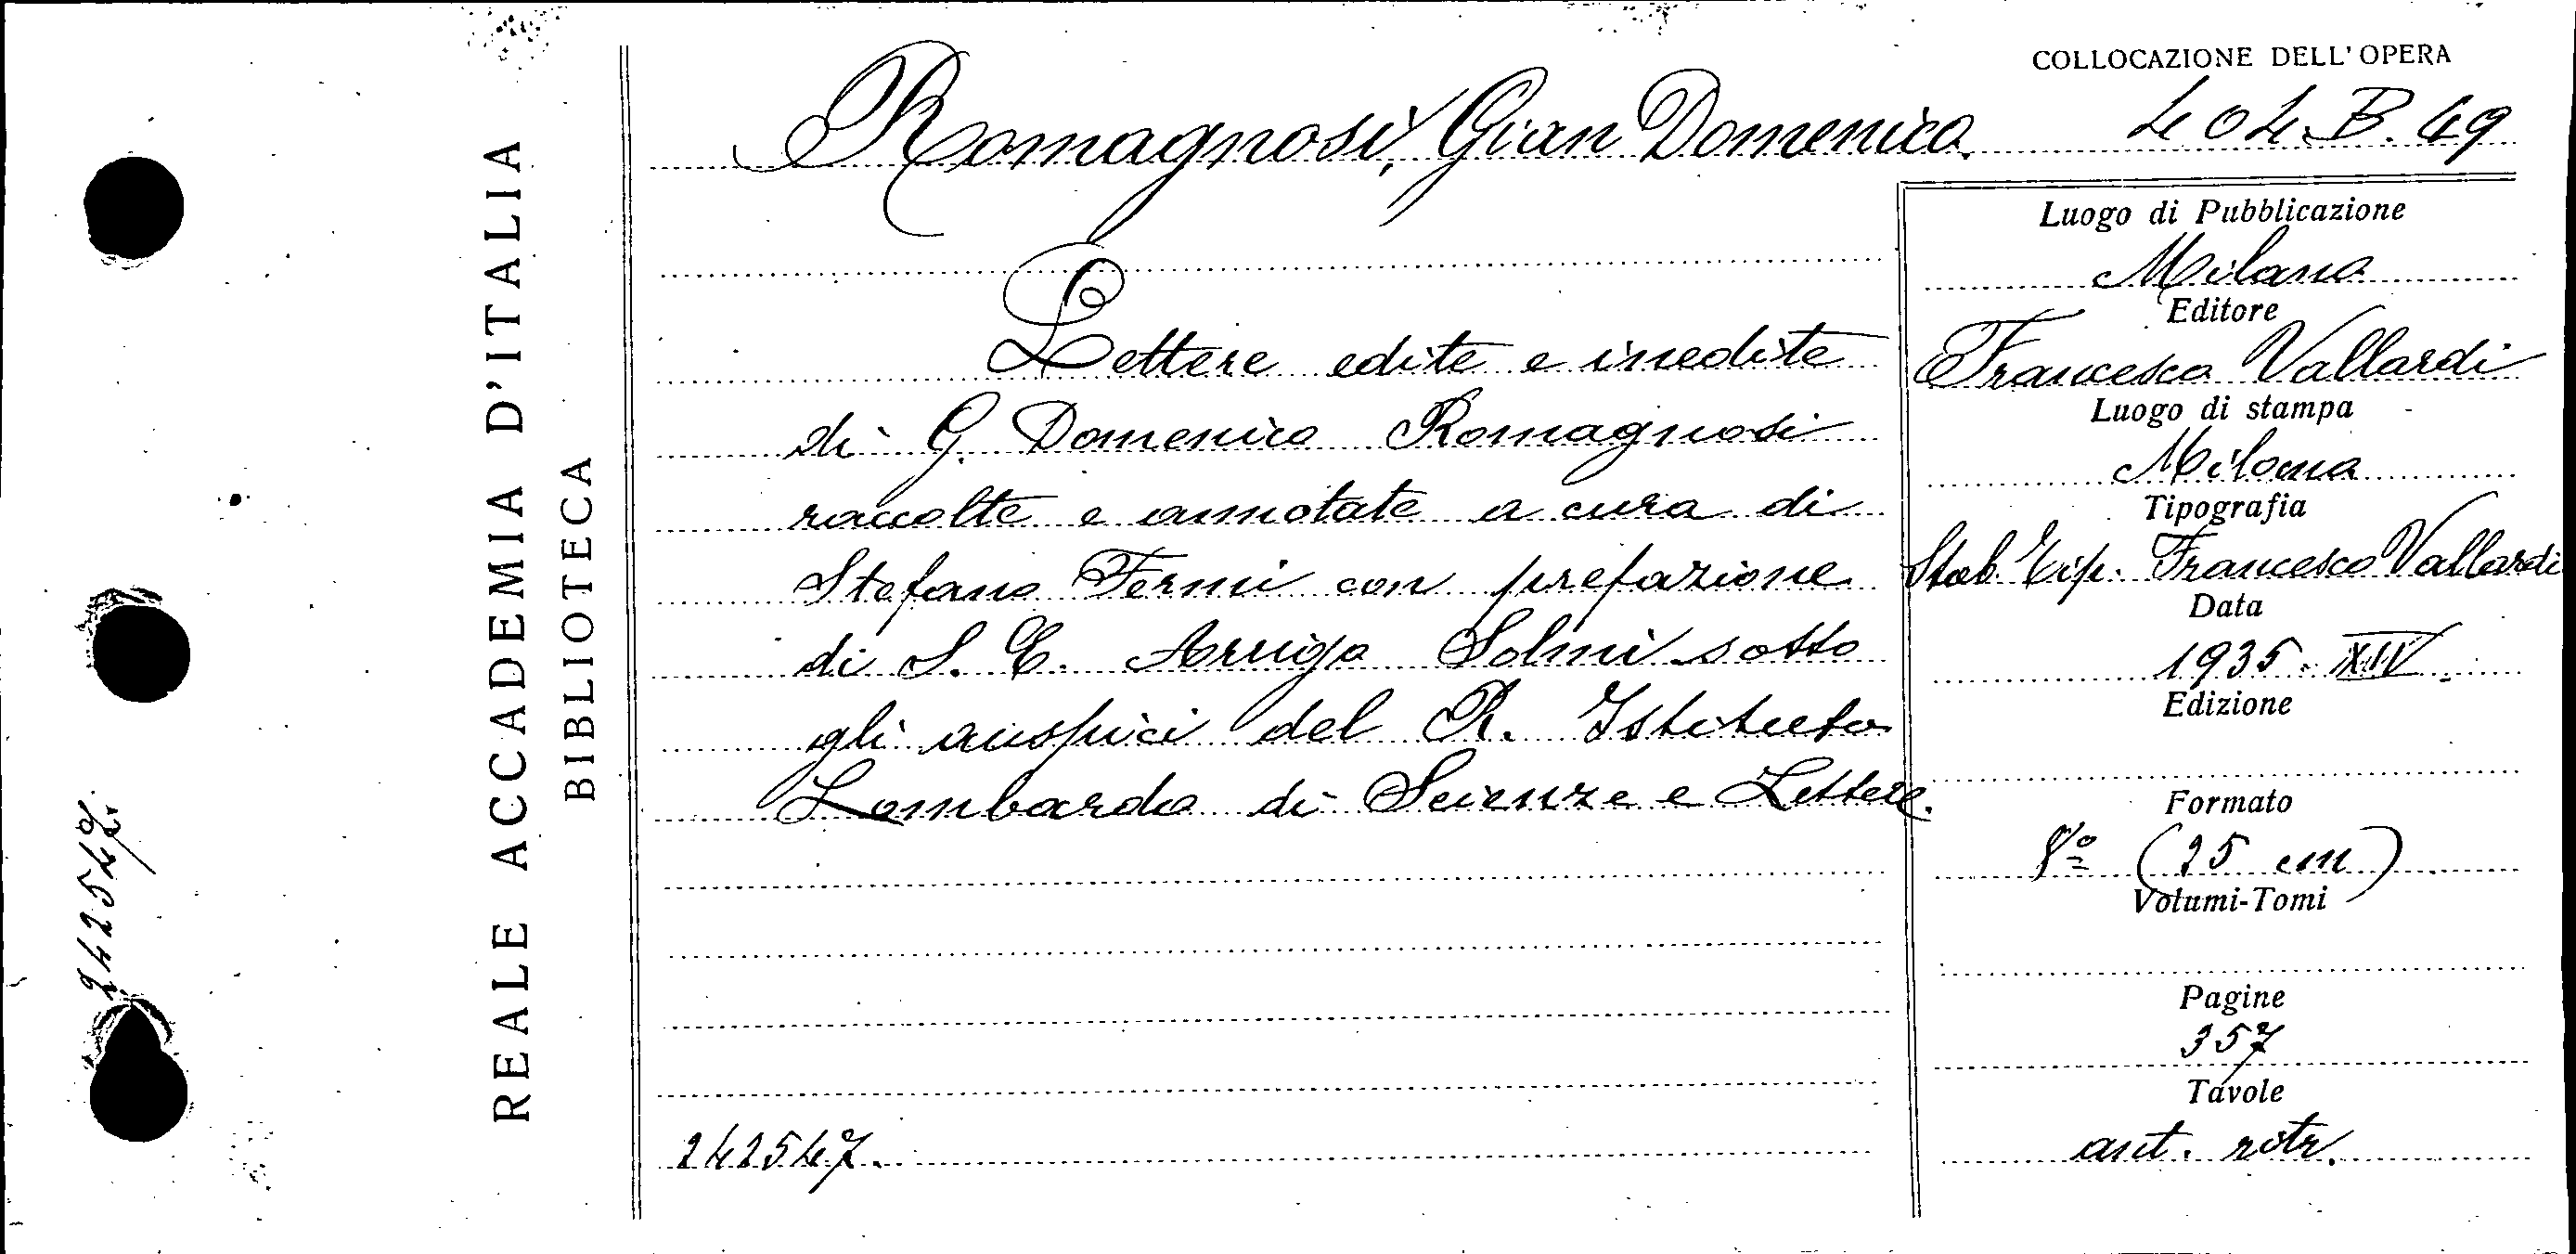 REALE ACCADEMIA D'ITALIA
BIBLIOTECA
242547.
COLLOCAZIONE DELL'OPERA
Romagnosi, Gian Domenico. 404.B.49
Lettere edite e inedite
di G. Domenico Romagnosi
raccolte e annotate a cura di
Stefano Fermi con prefazione
di S. E. Arrigo Solmi sotto
gli auspici del R. Istituto
Lombardo di Scienze e Lettere.
242547.
Luogo di Pubblicazione
Milano
Editore
Francesco Vallardi
Luogo di stampa
Milano
Tipografia
Stab. Tip. Francesco Vallardi
Data
1935. XIV.
Edizione
Formato
8º (25 cm)
Volumi-Tomi
Pagine
357
Tavole
ant. ritr.